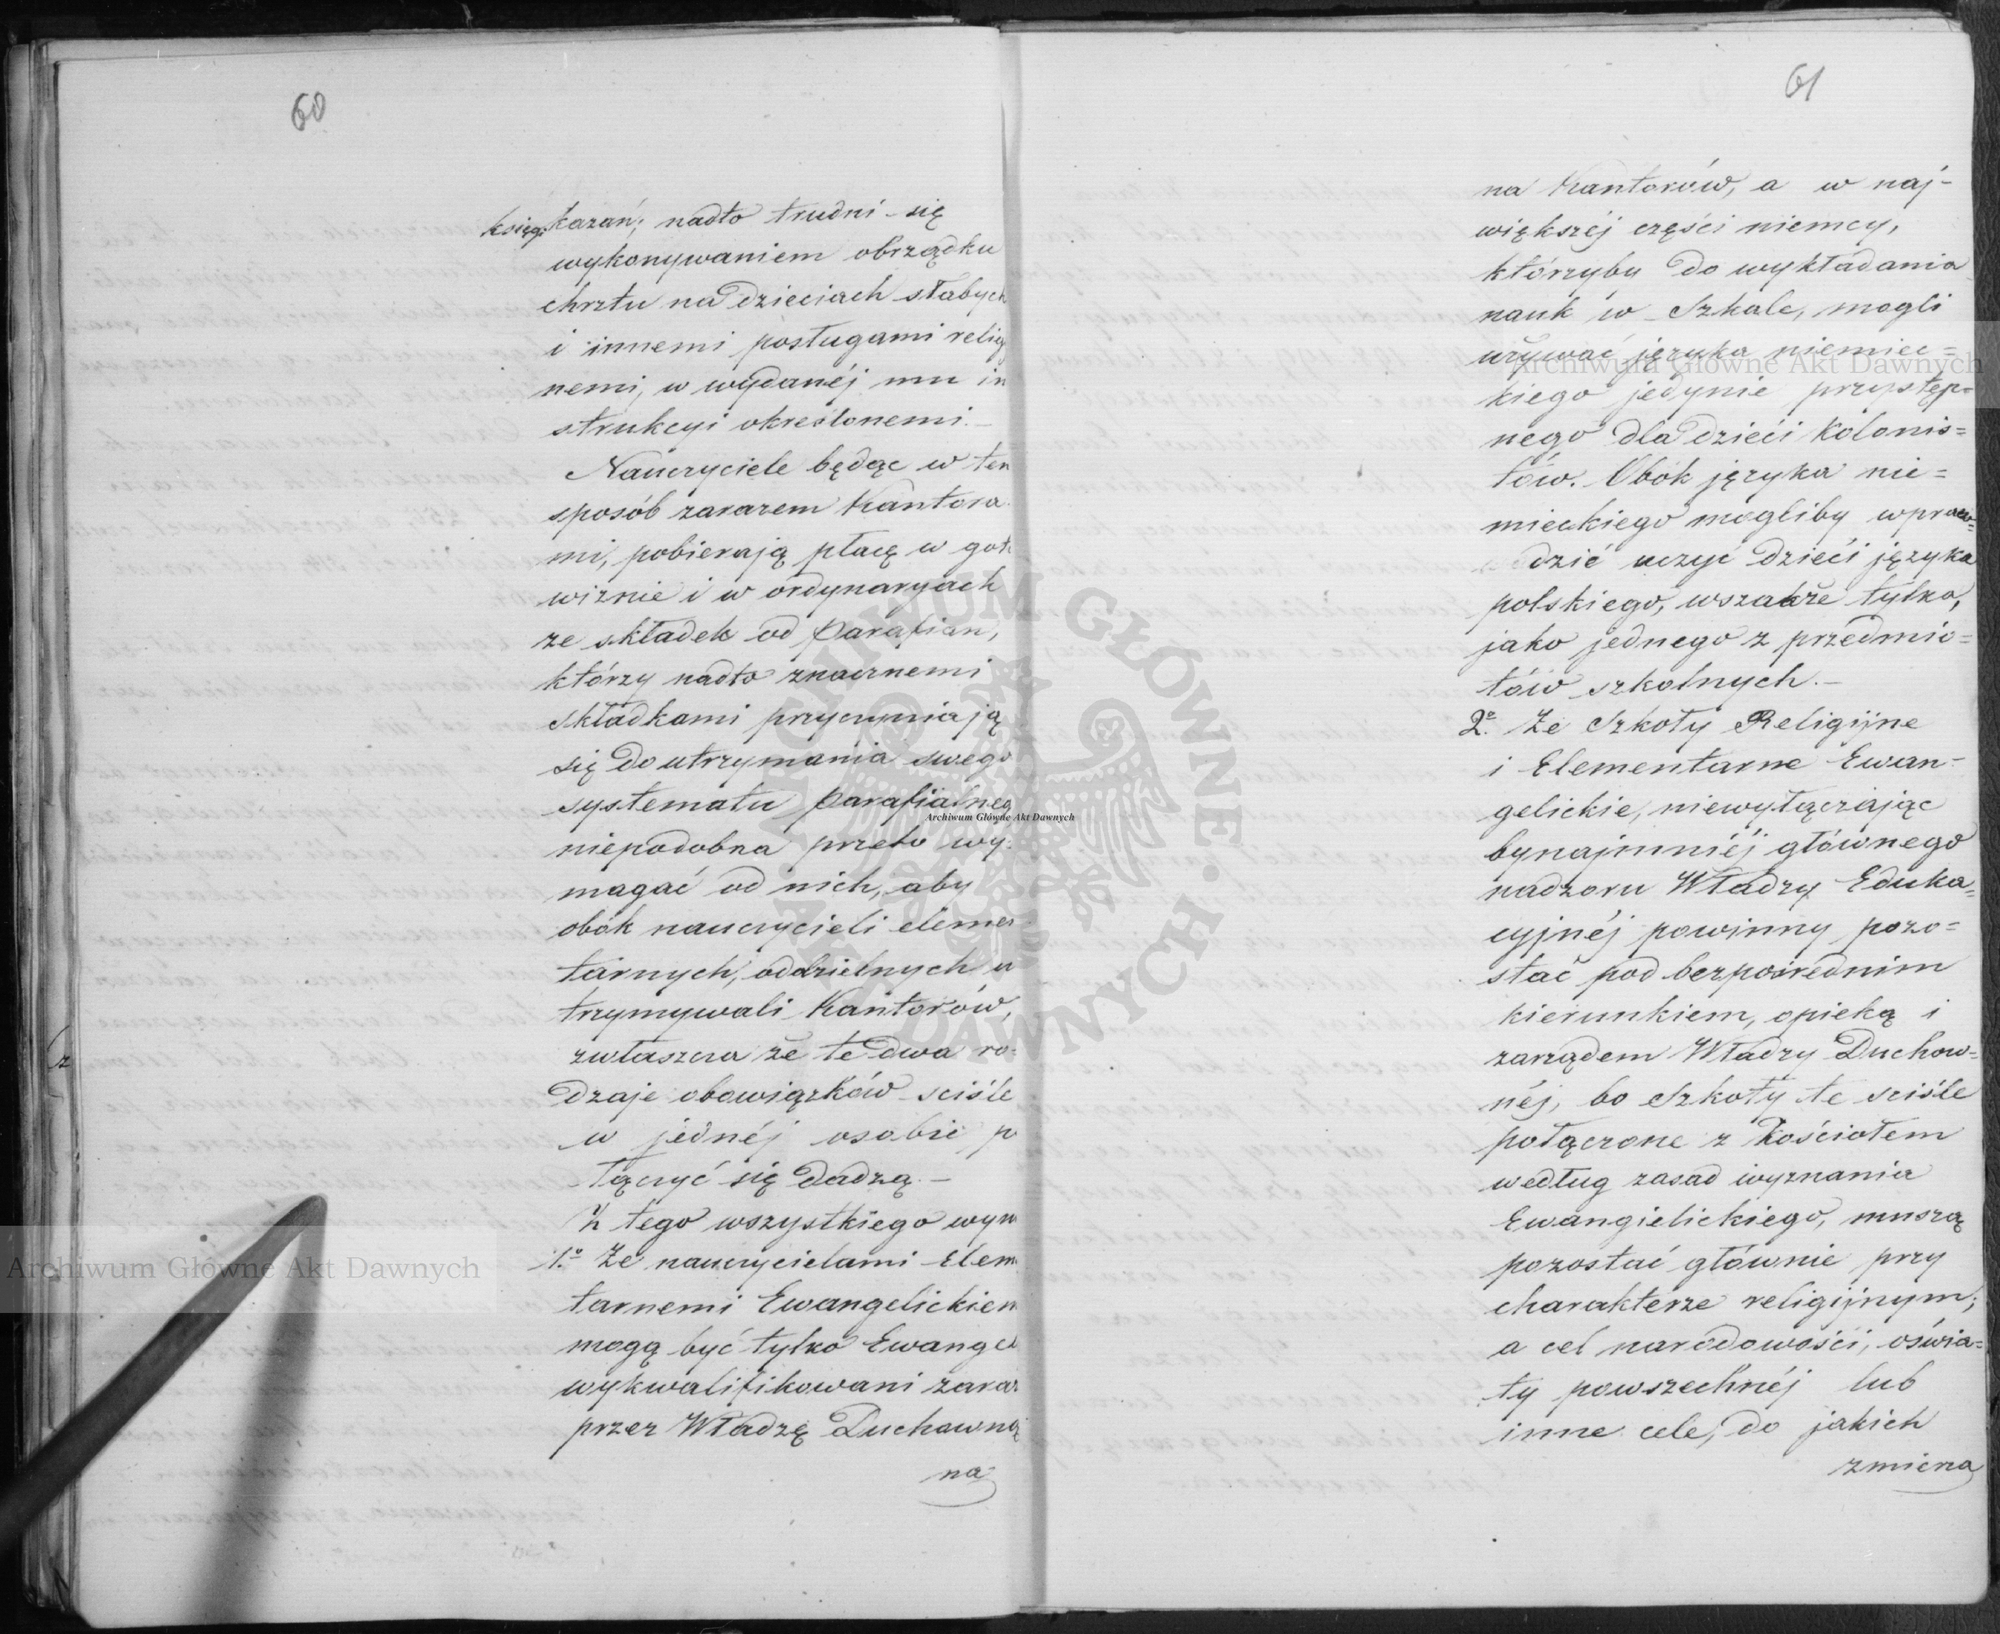 60
księg kazań; nadto trudni się
wykonywaniem obrządku
chrztu na dzieciach słabych
i innemi posługami relig
nemi, w wydanéj mu in
strukcyi określonemi.—
Nauczyciele będąc w ten
sposób zarazem Kantora
mi, pobierają płacę w goto
wiznie i w ordynaryach
ze składek od parafian,
którzy nadto znacznemi
składkami przyczyniają
się do utrzymania swego
systematu parafialneg
niepodobna przeto wy-
magać od nich, aby
obok nauczycieli elemen
tarnych, oddzielnych u
trzymywali Kantorów,
zwłaszcza że te dwa ro-
dzaje obowiązków sciśle
w jednéj osobie po
łączyć się dadzą.—
Z tego wszystkiego wyn
1º Że nauczycielami Elem
tarnemi Ewangelickiem
mogą być tylko Ewangel
wykwalifikowani zaraz
przez Władzę Duchowną
na
61
na Kantorów, a w naj-
większéj części niemcy,
którzyby do wykładania
nauk w Szkole, mogli
używać języka niemiec=
kiego jedynie przystęp=
nego dla dzieci Kolonis=
tów. Obok języka nie=
mieckiego mogliby wpraw=
dzić uczyć dzieci języka
polskiego, wszakże tylko,
jako jednego z przedmio=
tów szkolnych.—
2º Że Szkoły Religijne
i Elementarne Ewan-
gelickie, niewyłączając
bynajmniéj głównego
nadzoru Władzy Eduka=
cyjnéj powinny pozo=
stać pod bezpośrednim
kierunkiem, opieką i
zarządem Władzy Duchow=
néj, bo Szkoły te sciśle
połączone z Kościołem
według zasad wyznania
Ewangielickiego, muszą
pozostać głównie przy
charakterze religijnym;
a cel narodowości, oświa=
ty powszechnéj lub
inne cele, do jakich
zmierza
Archiwum Główne Akt Dawnych
Archiwum Główne Akt Dawnych
Archiwum Główne Akt Dawnych
ARCHIWUM GŁÓWNE AKT DAWNYCH